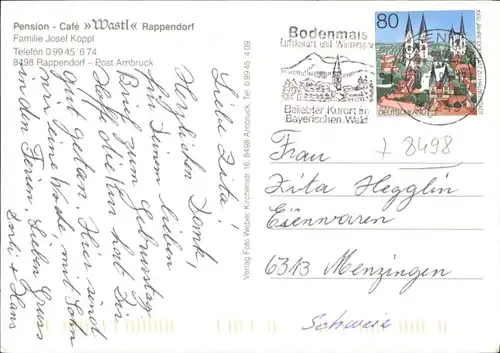 Pension - Café »Wastl« Rappendorf
Familie Josef Koppl
Telefon 0 99 45/6 74
8498 Rappendorf - Post Arnbruck
Liebe Zita!
Herzlichen Dank,
für Deinen lieben
Brief zum Geburtstag
Hoffe die Kur hat Dir
gut getan. Hier sind
wir eine Woche mit Sohn
in den Ferien. Lieben Gruss
+ Hans
Verlag Foto Weber, Kirchenstr. 16, 8498 Arnbruck, Tel. 0 99 45 4 09
Bodenmais
Luftkurort und Wintersport
Beliebter Kurort im
Bayerischen Wald
80
DEUTSCHLAND
7 8498
Frau
Zita Hegglin
Eisenwaren
6313 Menzingen
Schweiz